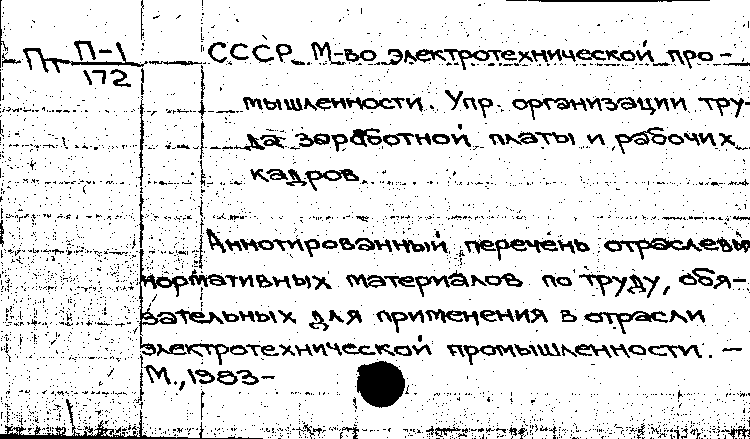 Пт П-1 СССР М-во электротехнической про-
172
мышленности. Упр. организации тру-
да заработной платы и рабочих
кадров.
Аннотированный перечень отраслевых
нормативных материалов по труду, обя-
зательных для применения в отрасли
электротехнической промышленности. —
М., 1983-